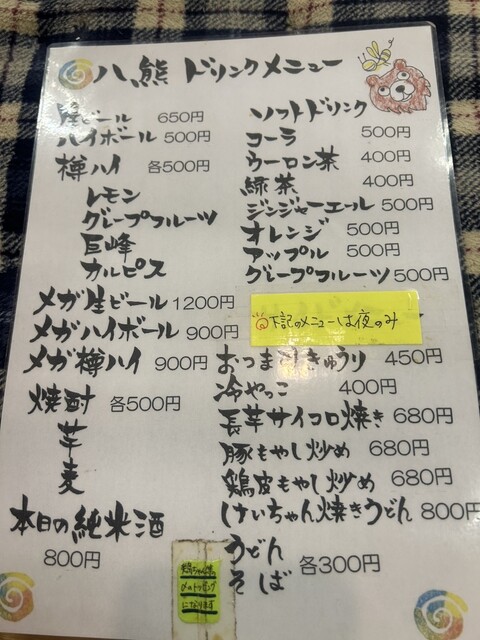 八熊 ドリンクメニュー
生ビール 650円
ハイボール 500円
樽ハイ 各500円
レモン
グレープフルーツ
巨峰
カルピス
メガ生ビール 1200円
メガハイボール 900円
メガ樽ハイ 900円
焼酎 各500円
芋
麦
本日の純米酒
800円
ソフトドリンク
コーラ 500円
ウーロン茶 400円
緑茶 400円
ジンジャーエール 500円
オレンジ 500円
アップル 500円
グレープフルーツ 500円
下記のメニューは夜のみ
おつまみきゅうり 450円
冷やっこ 400円
長芋サイコロ焼き 680円
豚もやし炒め 680円
鶏皮もやし炒め 680円
けいちゃん焼きうどん 800円
うどん
そば 各300円
鶏ちゃん焼
のトッピング
になります